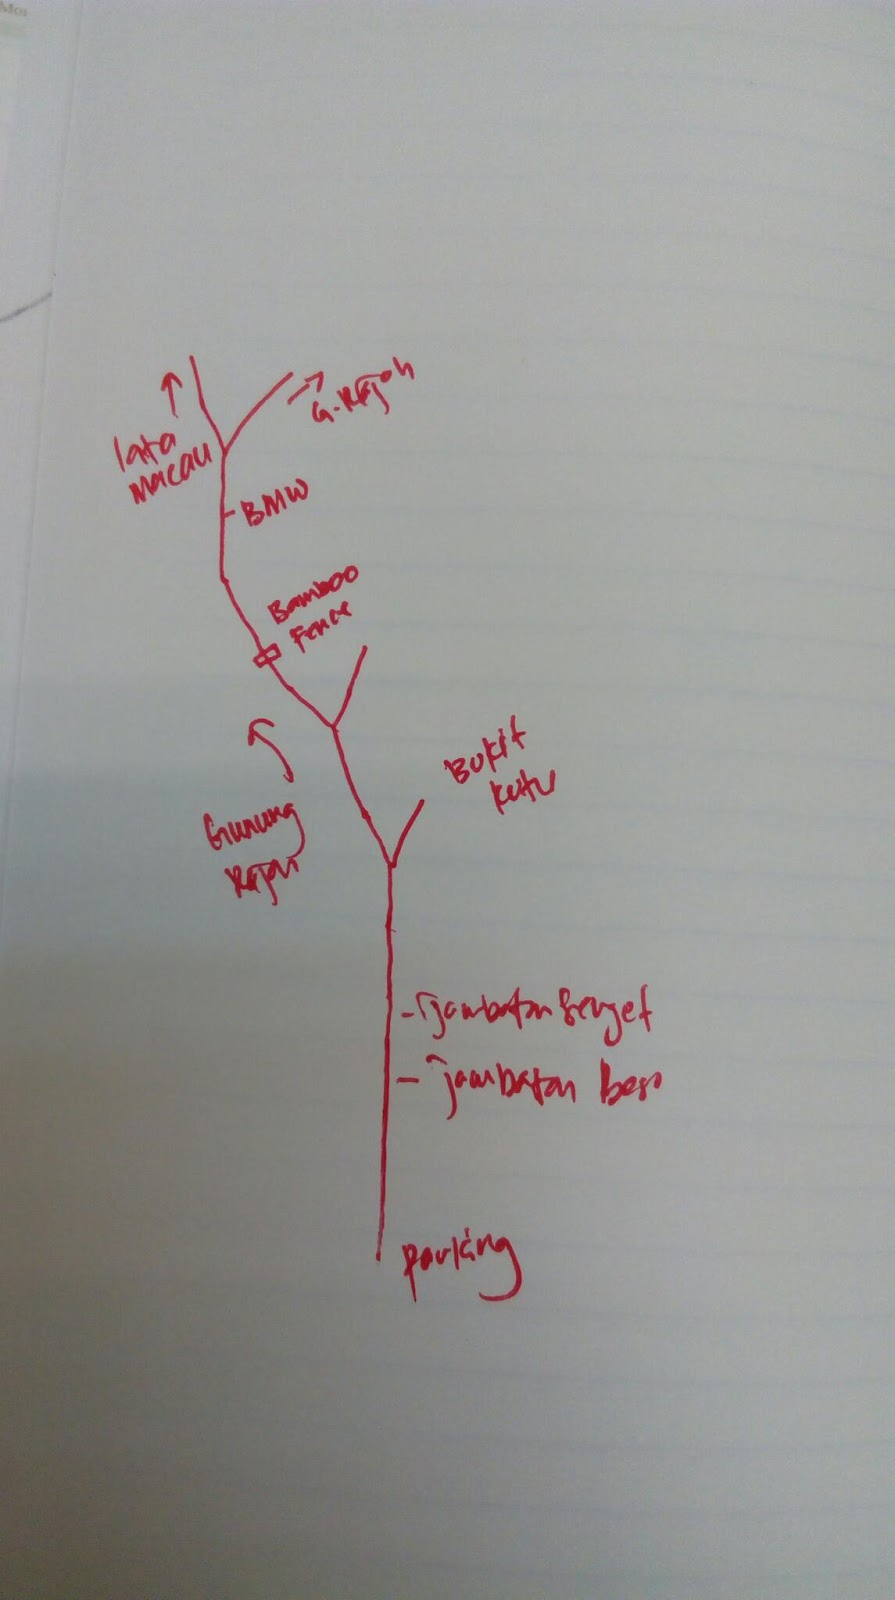 G. Rajah
lata
Macau
BMW
Bamboo
Fence
Bukit
Kutu
Gunung
Rajah
Jambatan Senget
Jambatan Besi
Parking